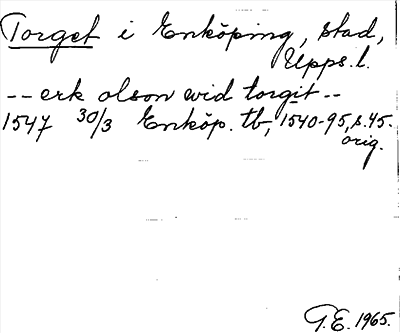 Torget i Enköping, stad,
Upps. l.
-- erk olson wid torgit --
1547 30/3 Enköp. tb, 1540-95, s. 45.
orig.
G.E. 1965.